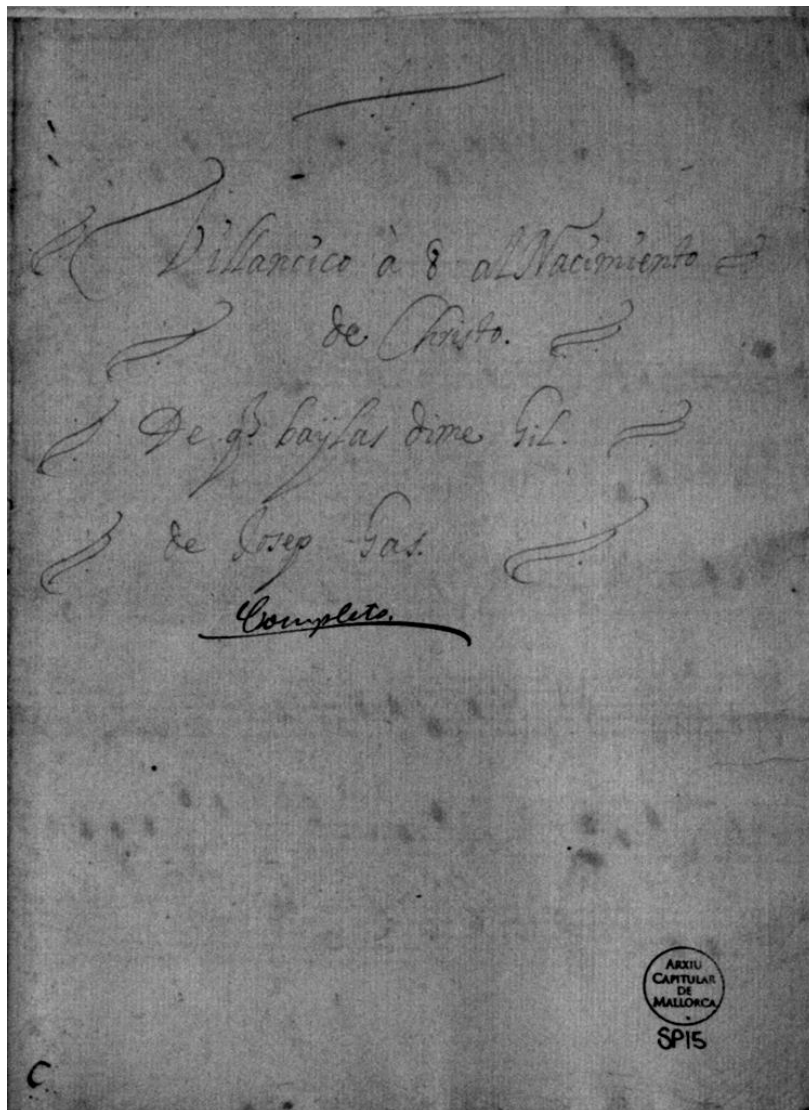 Villancico à 8 al Nacimiento
de Christo.
De q̃ baylas dime Gil.
de Josep Gas.
Completo.
ARXIU
CAPITULAR
DE
MALLORCA
SP15
C